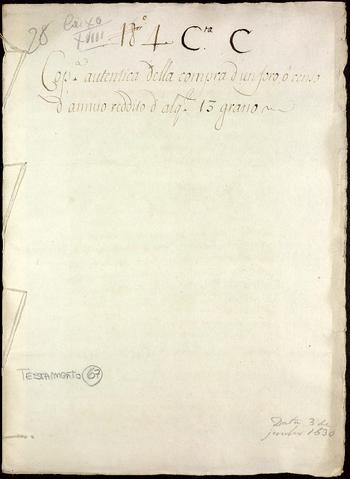 28
Caixa
XVIII
18º 4 C.ra C
Cop.a autentica della compra d'un foro ò censo
d'annuo reddito d'alq.e 13 grano
TESTAMENTO 67
Data 3 de
1630